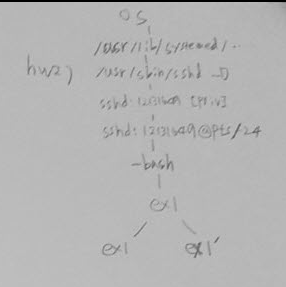 OS
/usr/lib/systemed/..
hw2)
/usr/sbin/sshd -D
sshd: 12131649 [priv]
sshd: 12131649@pts/24
-bash
ex1
ex1 ex1'